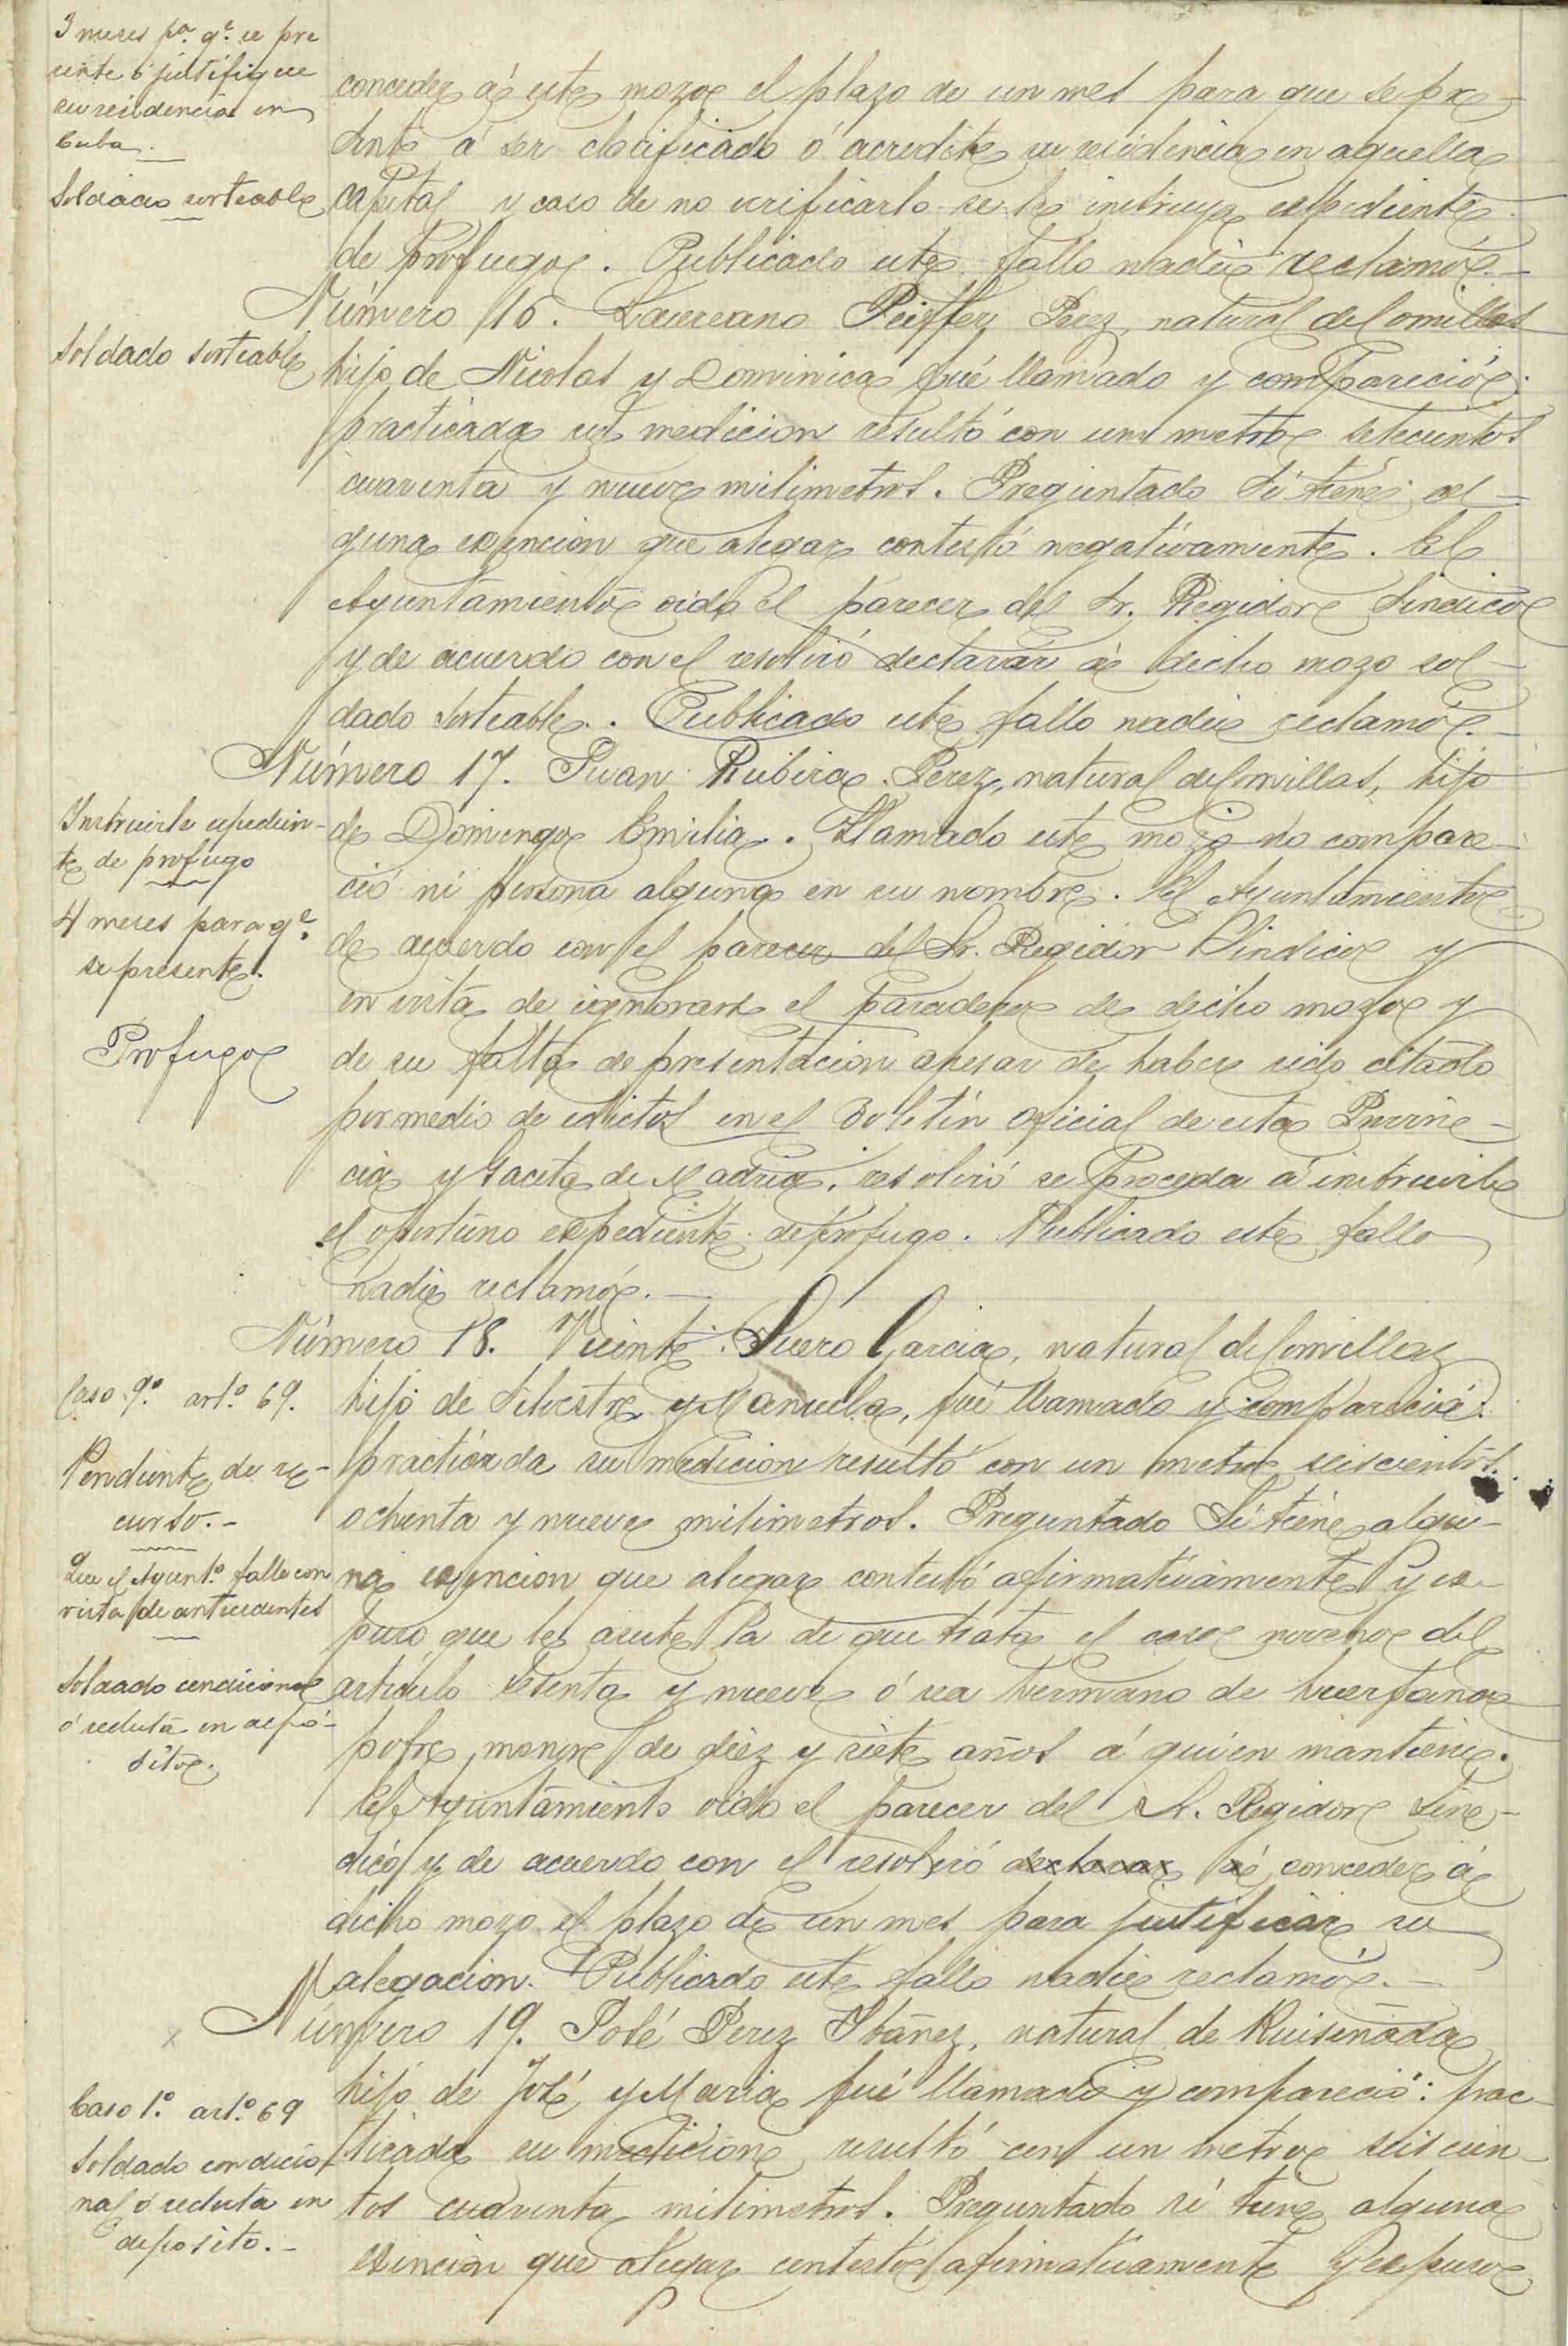 3 meses pª. qe. se pre
sente ó justifique
su residencia en
Cuba.
Soldado sorteable
conceder á este mozo el plazo de un mes para que se pre-
sente á ser clasificado ó acredite su residencia en aquella
capital y caso de no verificarlo se le instruya espediente
de prófugo. Publicado este fallo nadie reclamó.-
Número 16. Laureano Peiffer Perez, natural de Comillas
Soldado sorteable
hijo de Nicolas y Dominica fué llamado y compareció:
practicada su medicion resultó con un metro setecientos
cuarenta y nueve milimetros. Preguntado si tiene al-
guna exencion que alegar contestó negativamente. El
Ayuntamiento oido el parecer del Sr. Regidor Sindico
y de acuerdo con el resolvió declarar á dicho mozo sol-
dado sorteable. Publicado este fallo nadie reclamó.-
Número 17. Juan Rubira Perez, natural de Comillas, hijo
Instruirle espedien-
te de profugo
4 meses para qe.
se presente.
Profugo
de Domingo Emilia. Llamado este mozo no compare-
ció ni persona alguna en su nombre. El Ayuntamiento
de acuerdo con el parecer del Sr. Regidor Sindico y
en vista de ignorarse el paradero de dicho mozo y
de su falta de presentacion apesar de haber sido citado
por medio de edictos en el Boletín oficial de esta Provin-
cia y Gaceta de Madrid, resolvió se proceda á instruirle
el oportuno espediente de prófugo. Publicado este fallo
nadie reclamó.-
Número 18. Vicente Suero Garcia, natural de Comillas
Caso 9º. artº. 69.
Pendiente de re-
curso.-
Que el Ayuntº. falle con
vista de antecedentes
Soldado condicional
ó recluta en depó-
sito.
hijo de Silvestre y Manuela, fué llamado y compareció:
practicada su medicion resultó con un metro seiscientos
ochenta y nueve milimetros. Preguntado si tiene algu-
na exencion que alegar contestó afirmativamente y es-
puso que le asiste la de que trata el caso noveno del
articulo sesenta y nueve ó sea hermano de huerfano
pobre menor de diez y siete años á quien mantiene.
El Ayuntamiento oido el parecer del Sr. Regidor Sin-
dico y de acuerdo con el resolvió declarar á conceder á
dicho mozo el plazo de un mes para justificar su
alegacion. Publicado este fallo nadie reclamó.-
Número 19. José Perez Ibáñez, natural de Ruiseñada
Caso 1º. artº. 69
Soldado condicio-
nal ó recluta en
deposito.-
hijo de José y Maria fué llamado y compareció: prac-
ticada su medicion resultó con un metro seiscien-
tos cuarenta milimetros. Preguntado si tiene alguna
exencion que alegar contestó afirmativamente y espuso